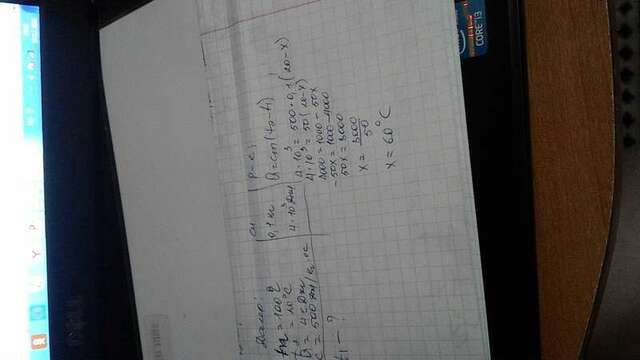 DELL
Дано:
m = 100 г
t₂ = 20°C
Q = 4 кДж
c = 500 Дж/кг·°C
t₁ - ?
СИ
0,1 кг
4·10³ Дж
Р-е:
Q = cm(t₂-t₁)
4·10³ = 500·0,1(20-x)
4·10³ = 50(20-x)
4000 = 1000-50x
-50x = 1000-4000
50x = 3000
x = 3000/50
x = 60°C
CORE i3